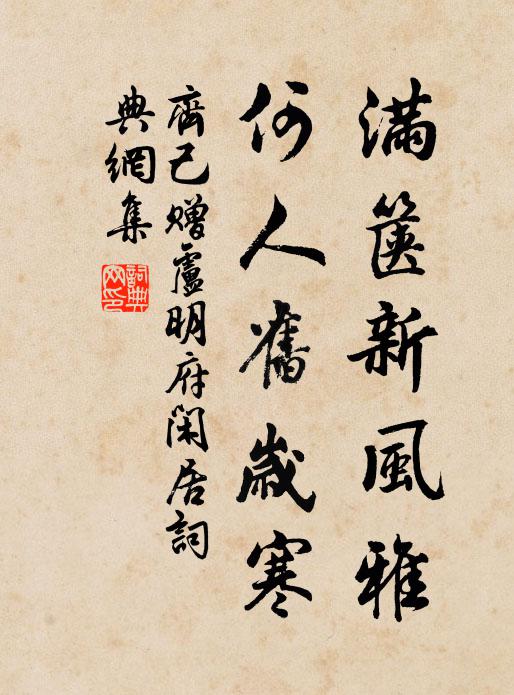 滿篋新風雅
何人舊歲寒
齊己贈盧明府閑居詞
典網集
詞典網印